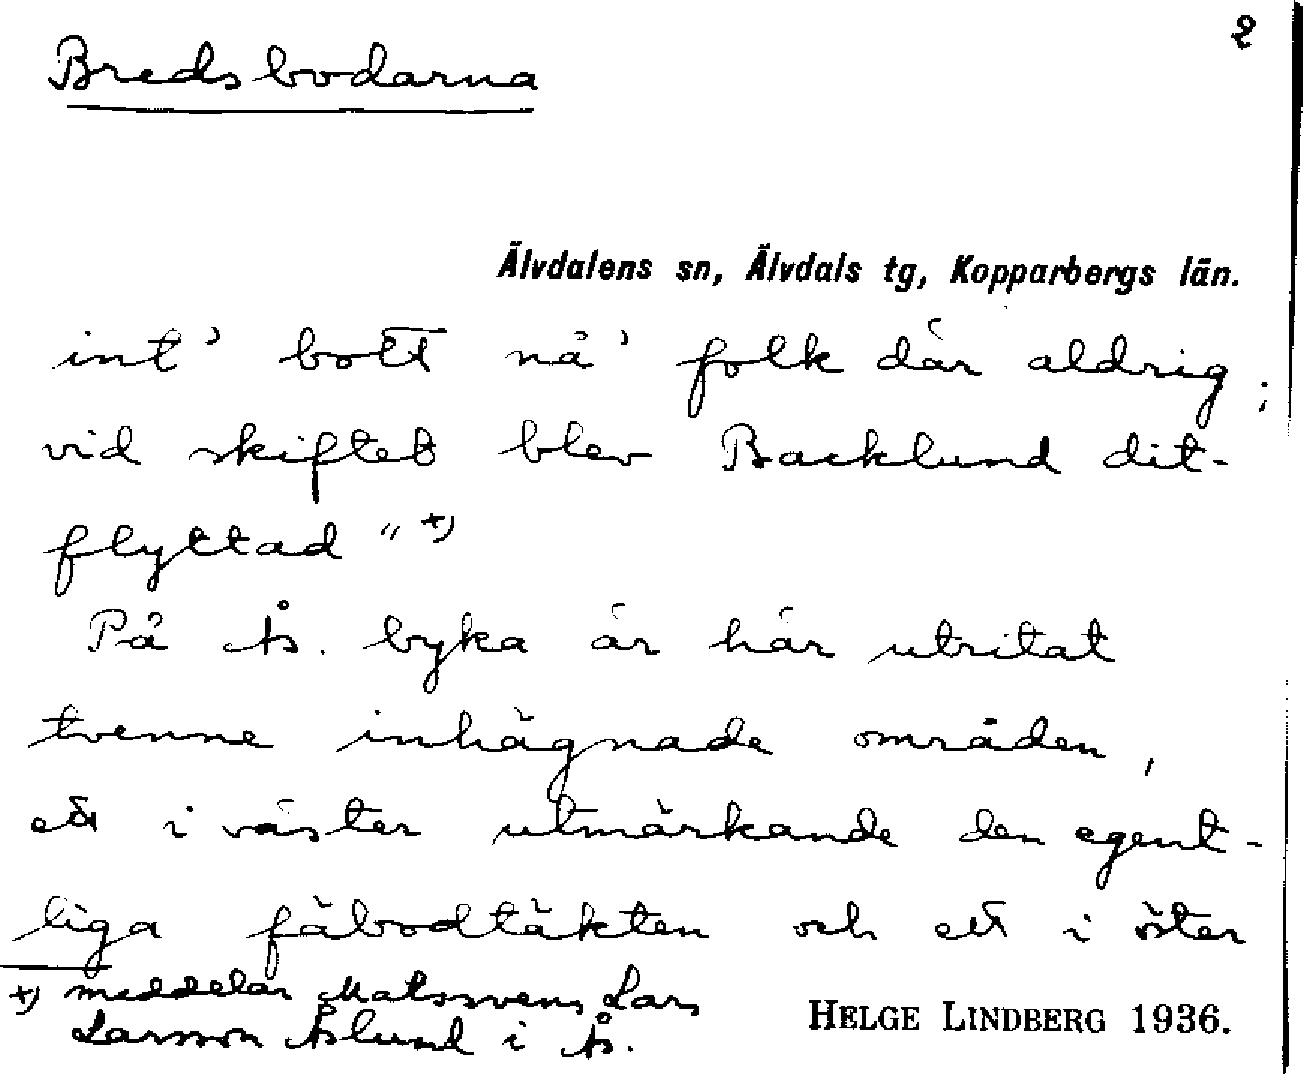 2
Bredsbodarna
Älvdalens sn, Älvdals tg, Kopparbergs län.
int' bott nå' folk där aldrig;
vid skiftet blev Backlund dit-
flyttad" +)
På Ås. byka är här utritat
tvenne inhägnade områden,
ett i väster utmärkande den egent-
liga fäbodtäkten och ett i öster
+) meddelar Matssvens Lars
Larsson Åslund i Ås.
HELGE LINDBERG 1936.